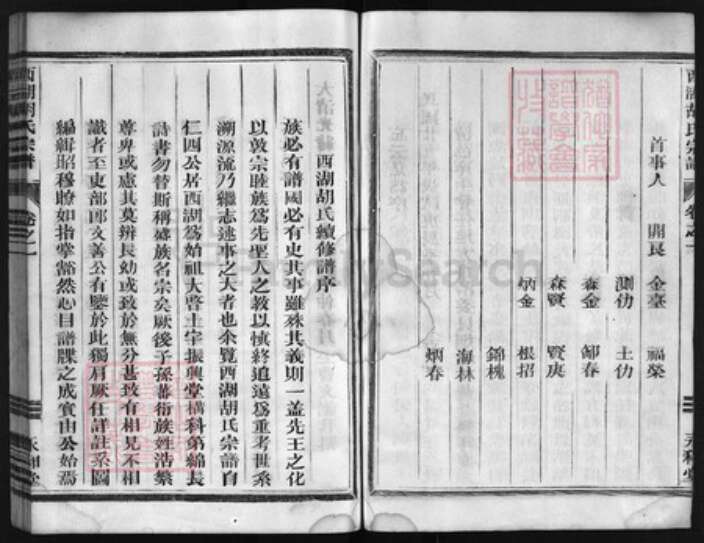 西湖胡氏宗譜
卷之一
首事人 開良 金臺 福榮
測仂 土仂
森金 鄒春
森賢 賢庚
炳金 根招
錦槐
海林
炳春
西湖胡氏續修譜序
族必有譜國必有史其事雖殊其義則一蓋先王之化
以敦宗睦族爲先聖人之教以慎終追遠爲重考世系
溯源流乃繼志述事之大者也余覽西湖胡氏宗譜自
仁四公居西湖爲始祖大啓土宇振興堂構科第綿長
詩書勿替斯稱盛族名宗矣厥後子孫蕃衍族姓浩繁
尊卑或慮其莫辨長幼或致於無分甚致有相見不相
識者至吏部郎文善公有鑒於此獨肩厥任詳註系圖
編緝昭穆瞭如指掌豁然心目譜牒之成實由公始焉
西湖胡氏宗譜
卷之一
FamilySearch